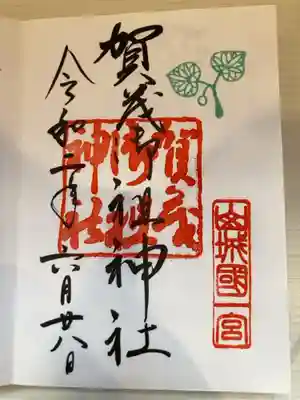 山城國一宮
賀茂御祖神社
賀茂御祖神社
令和二年六月廿八日